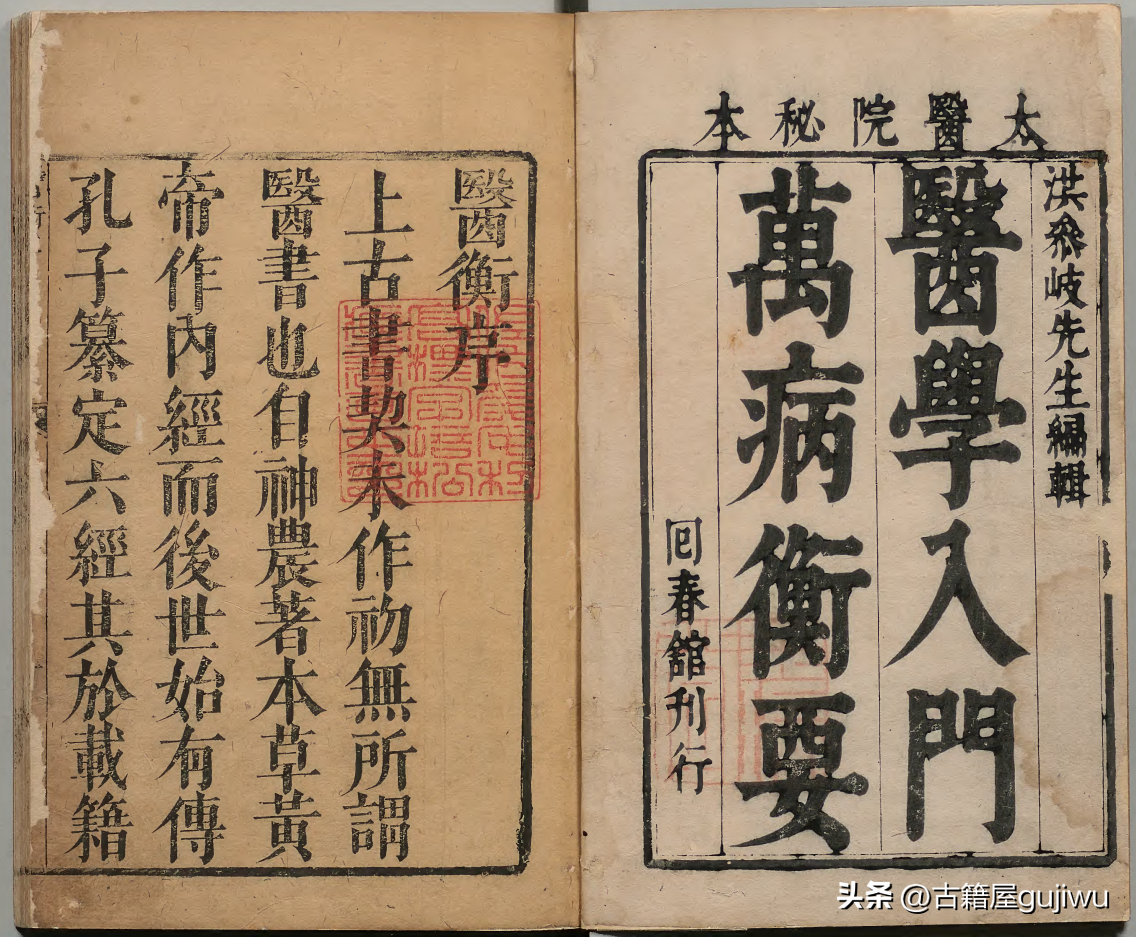 太醫院秘本
洪叅岐先生編輯
醫學入門
萬病衡要
回春舘刋行
醫衡序
上古書契未作初無所謂
醫書也自神農著本草黃
帝作內經而後世始有傳
孔子纂定六經其於載籍
头条 @古籍屋gujiwu